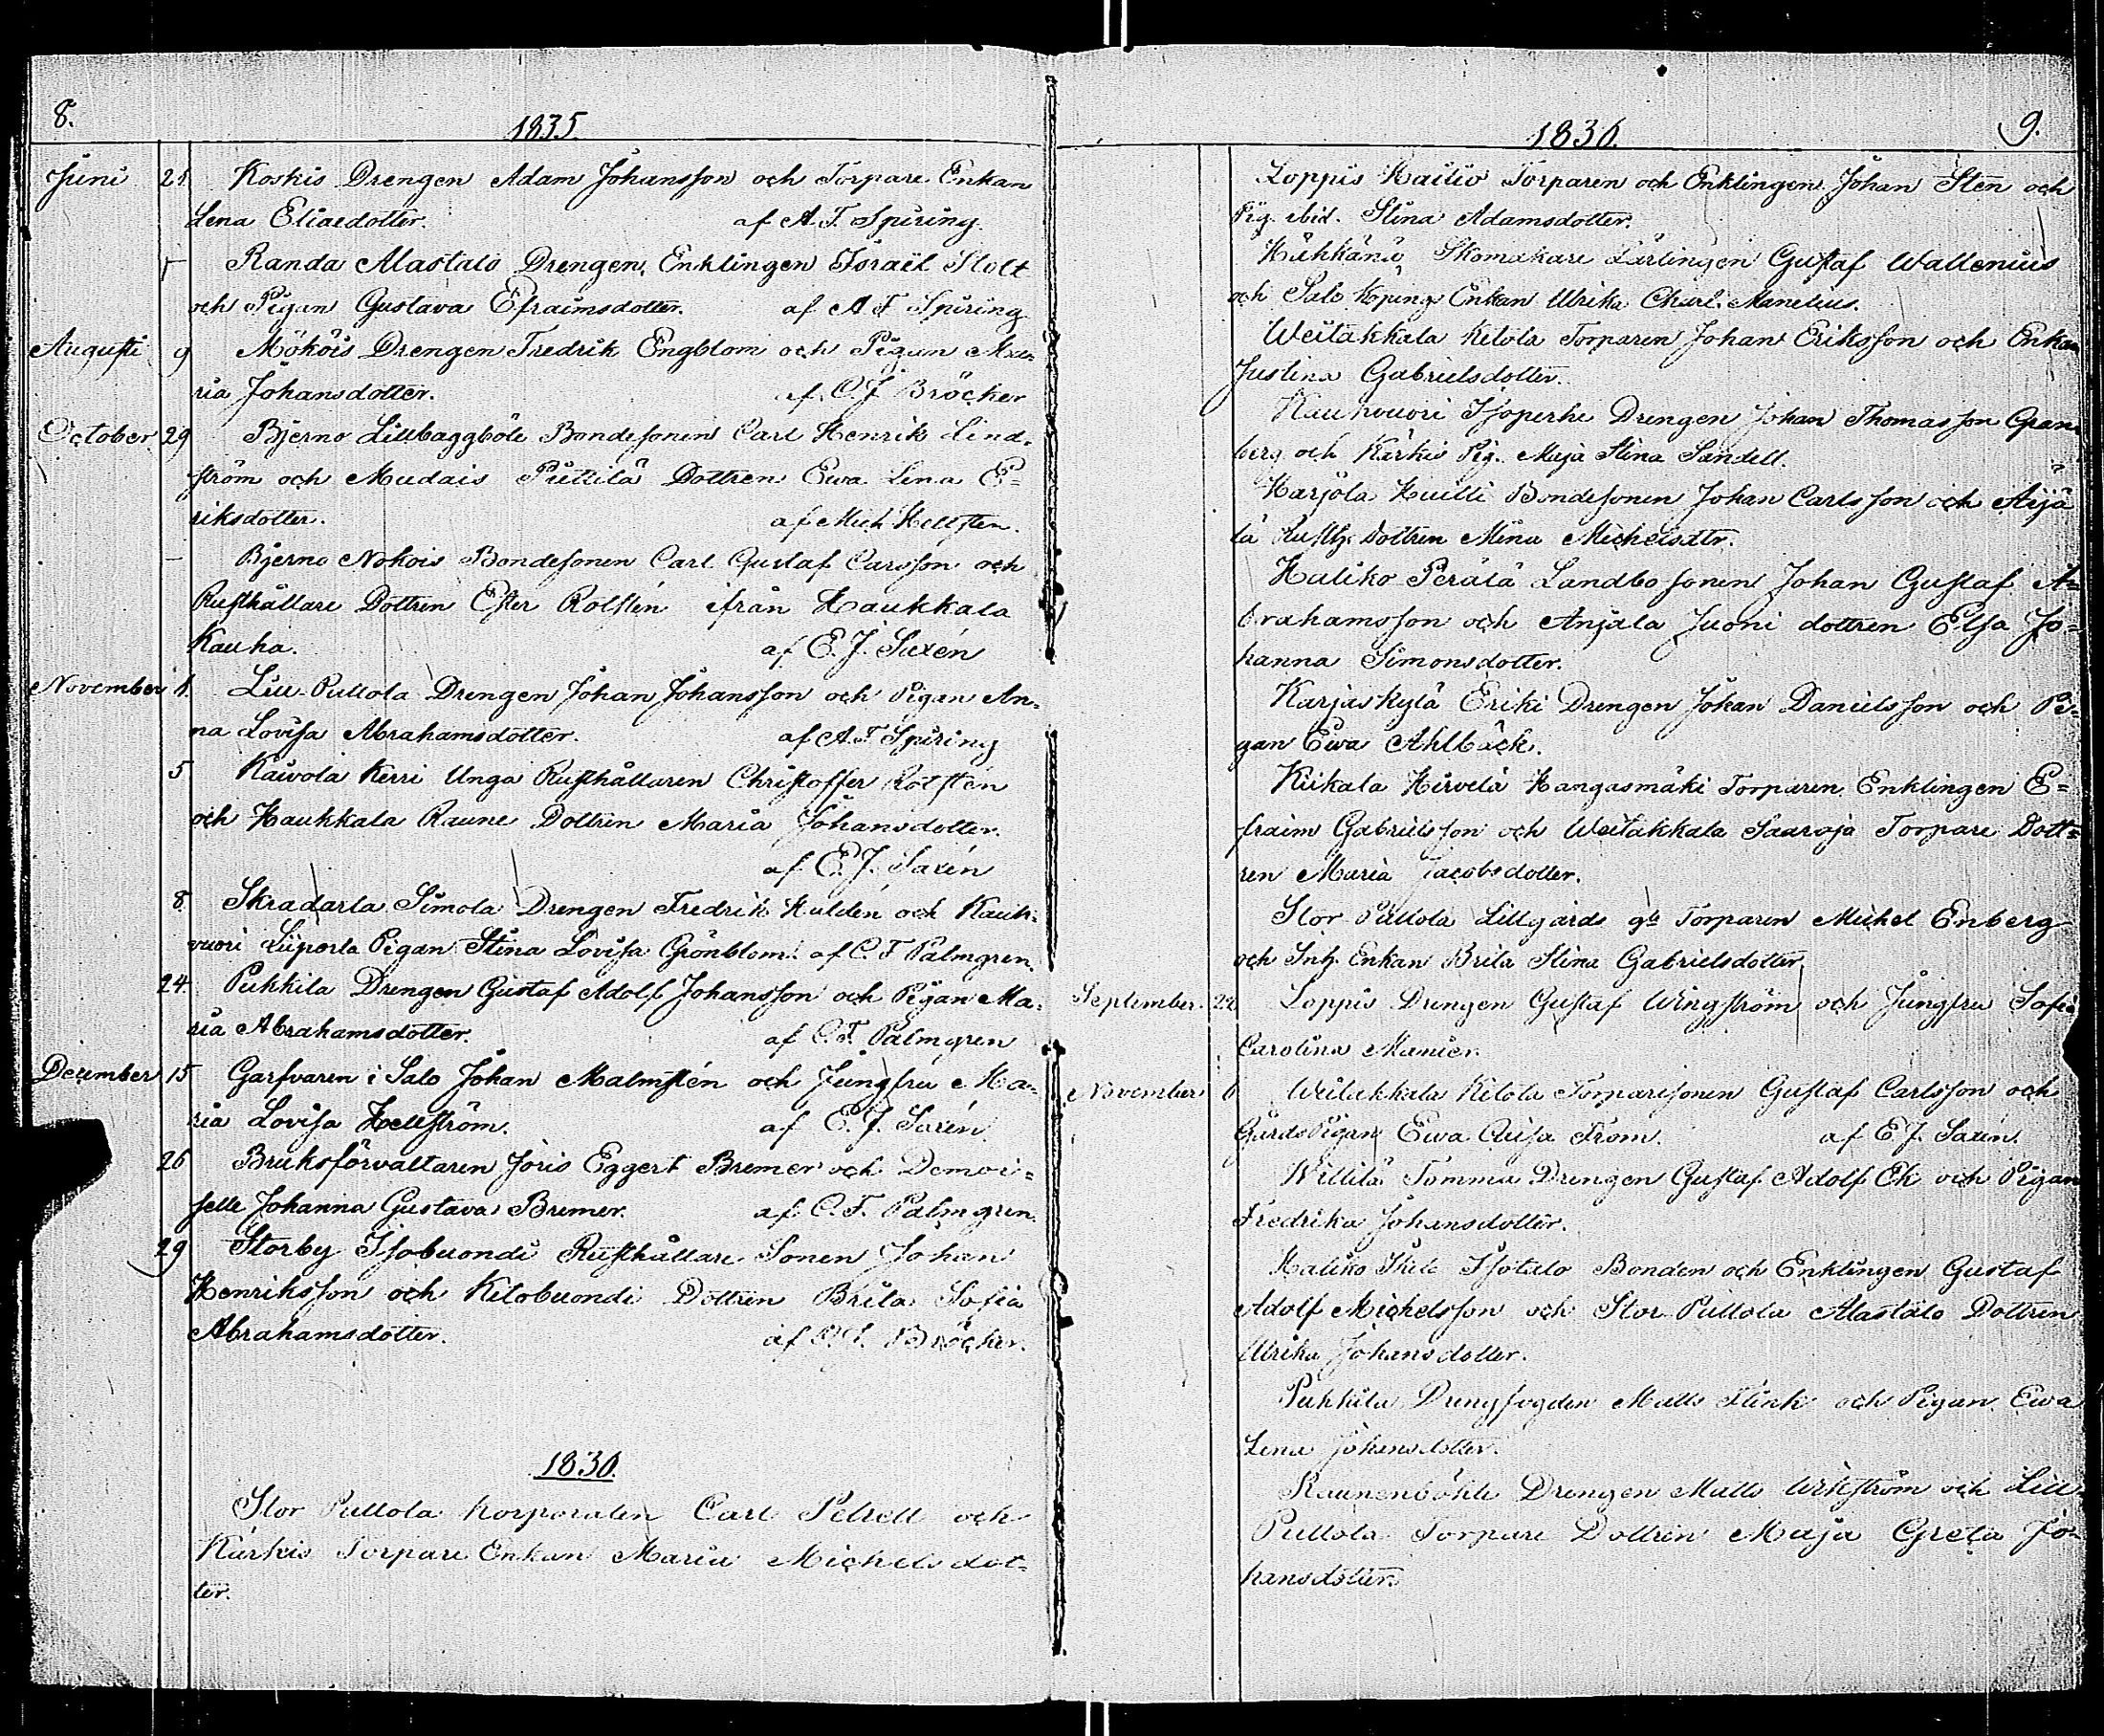 8.
1835.
Juni 21 Koskis Drengen Adam Johansson och Torpare Enkan
Lena Eliaedotter. af A. F. Spiring.
Randa Alastalo Drengen, Enklingen Israël Stolt
och Pigan Gustava Efraimsdotter. af A F Spiring
Augusti 9 Mököis Drengen Fredrik Engblom och Pigan Ma-
ria Johansdotter. af C. J. Bröcker
October 29 Bjerno Lillbaggböle Bondesonen Carl Henrik Lind-
ström och Mudais Puttila Dottren Ewa Lena E=
riksdotter. af Mich Hellsten.
— Bjerno Nokois Bondesonen Carl Gustaf Carsson och
Rusthållare Dottren Ester Rolstén ifrån Haukkala
Kauha. af E. J. Saxén
November 1. Lill-Pullola Drengen Johan Johansson och Pigan An-
na Lovisa Abrahamsdotter. af A. F Spiring
5 Kaivola Kerri Unga Rusthållaren Christoffer Rolstén
och Haukkala Raune Dottren Maria Johansdotter.
af E. J. Saxén
8. Skradarla Simola Drengen Fredrik Huldén och Kauk-
vuori Liiperla Pigan Stina Lovisa Grönblom. af C. F Palmgren.
24. Pukkila Drengen Gustaf Adolf Johansson och Pigan Ma-
ria Abrahamsdotter. af C. F. Palmgren
December 15 Garfvaren i Salo Johan Malmstén och Jungfru Ma-
ria Lovisa Hellström. af E. J. Saxén
26 Bruksförvaltaren Joris Eggert Bremer och Demoi-
selle Johanna Gustava Bremer. af C. F. Palmgren.
29 Storby Isobuondi Rusthållare Sonen Johan
Henriksson och Kitobuondi Dottren Brita Sofia
Abrahamsdotter. af Bröcker.
1836.
Stor Pullola Korporalen Carl Petrell och
Kärkis Torpare Enkan Maria Michelsdot-
ter.
9.
1836.
Loppis Kailio Torparen och Enklingen Johan Sten och
Pig. ibid. Stina Adamsdotter.
Skomakare Lärlingen Gustaf Wallenius
och Salo Köping Enkan Ulrika Charl. Manelius.
Weitakkala Ketola Torparen Johan Eriksson och Enkan
Justina Gabrielsdotter.
Kaukvuori Isoperhe Drengen Johan Thomasson Gran-
berg och Kärkis Pig. Maja Stina Sandell.
Karjola Huilli Bondesonen Johan Carlsson och Aijä
lä Rusth. Dottren Mina Michelsdtr.
Haliko Perälä Landbo sonen Johan Gustaf A-
brahamsson och Anjala Juoni dottren Elsa Jo-
hanna Simonsdotter.
Karjaskylä Eriki Drengen Johan Danielsson och Pi-
gan Ewa Ahlbäck.
Kiikala Hirvelä Kangasmäki Torparen Enklingen E=
fraim Gabrielsson och Weitakkala Saaroja Torpare Dott=
ren Maria Jacobsdotter.
Stor Pullola Lillgärds gle Torparen Michel Enberg
och Inh. Enkan Brita Stina Gabrielsdotter.
September. 22 Loppis Drengen Gustaf Wingström och Jungfru Sofia
Carolina Manier.
November 6 Weitakkala Ketola Torparesonen Gustaf Carlsson och
Gårds Pigan Ewa Caisa From. af E. J. Saxén.
Willilä Tomma Drengen Gustaf Adolf Ek och Pigan
Fredrika Johansdotter.
Haliko Isotalo Bonden och Enklingen Gustaf
Adolf Michelsson och Stor Pullola Alastalo Dottren
Ulrika Johansdotter.
Pukkila Drengfogden Matts Flink och Pigan Ewa
Lena Johansdotter.
Drengen Matts Wikström och Lill
Pullola Torpare Dottren Maja Greta Jo-
hansdotter.